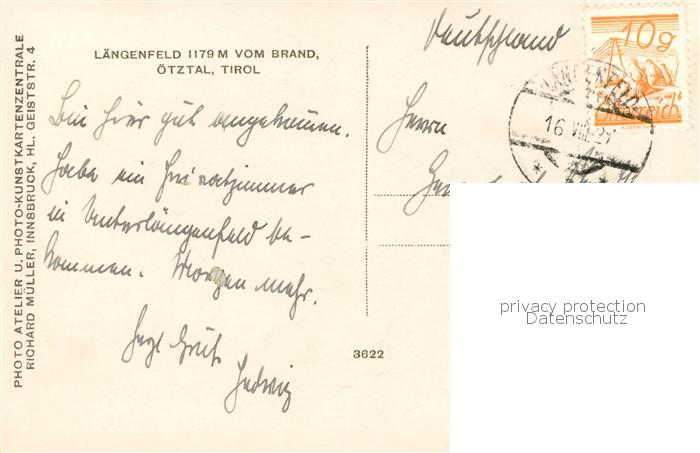 PHOTO ATELIER U. PHOTO-KUNSTKARTENZENTRALE
RICHARD MÜLLER, INNSBRUCK, HL. GEISTSTR. 4
LÄNGENFELD 1179 M VOM BRAND,
ÖTZTAL, TIROL
Bin hier gut angekommen.
Habe ein Privatzimmer
in Unterlängenfeld be-
kommen. Morgen mehr.
Herzl Gruß
Hedwig
3622
Deutschland
Herrn
10g
Österreich
LÄNGENFELD
16 VIII 27
privacy protection
Datenschutz